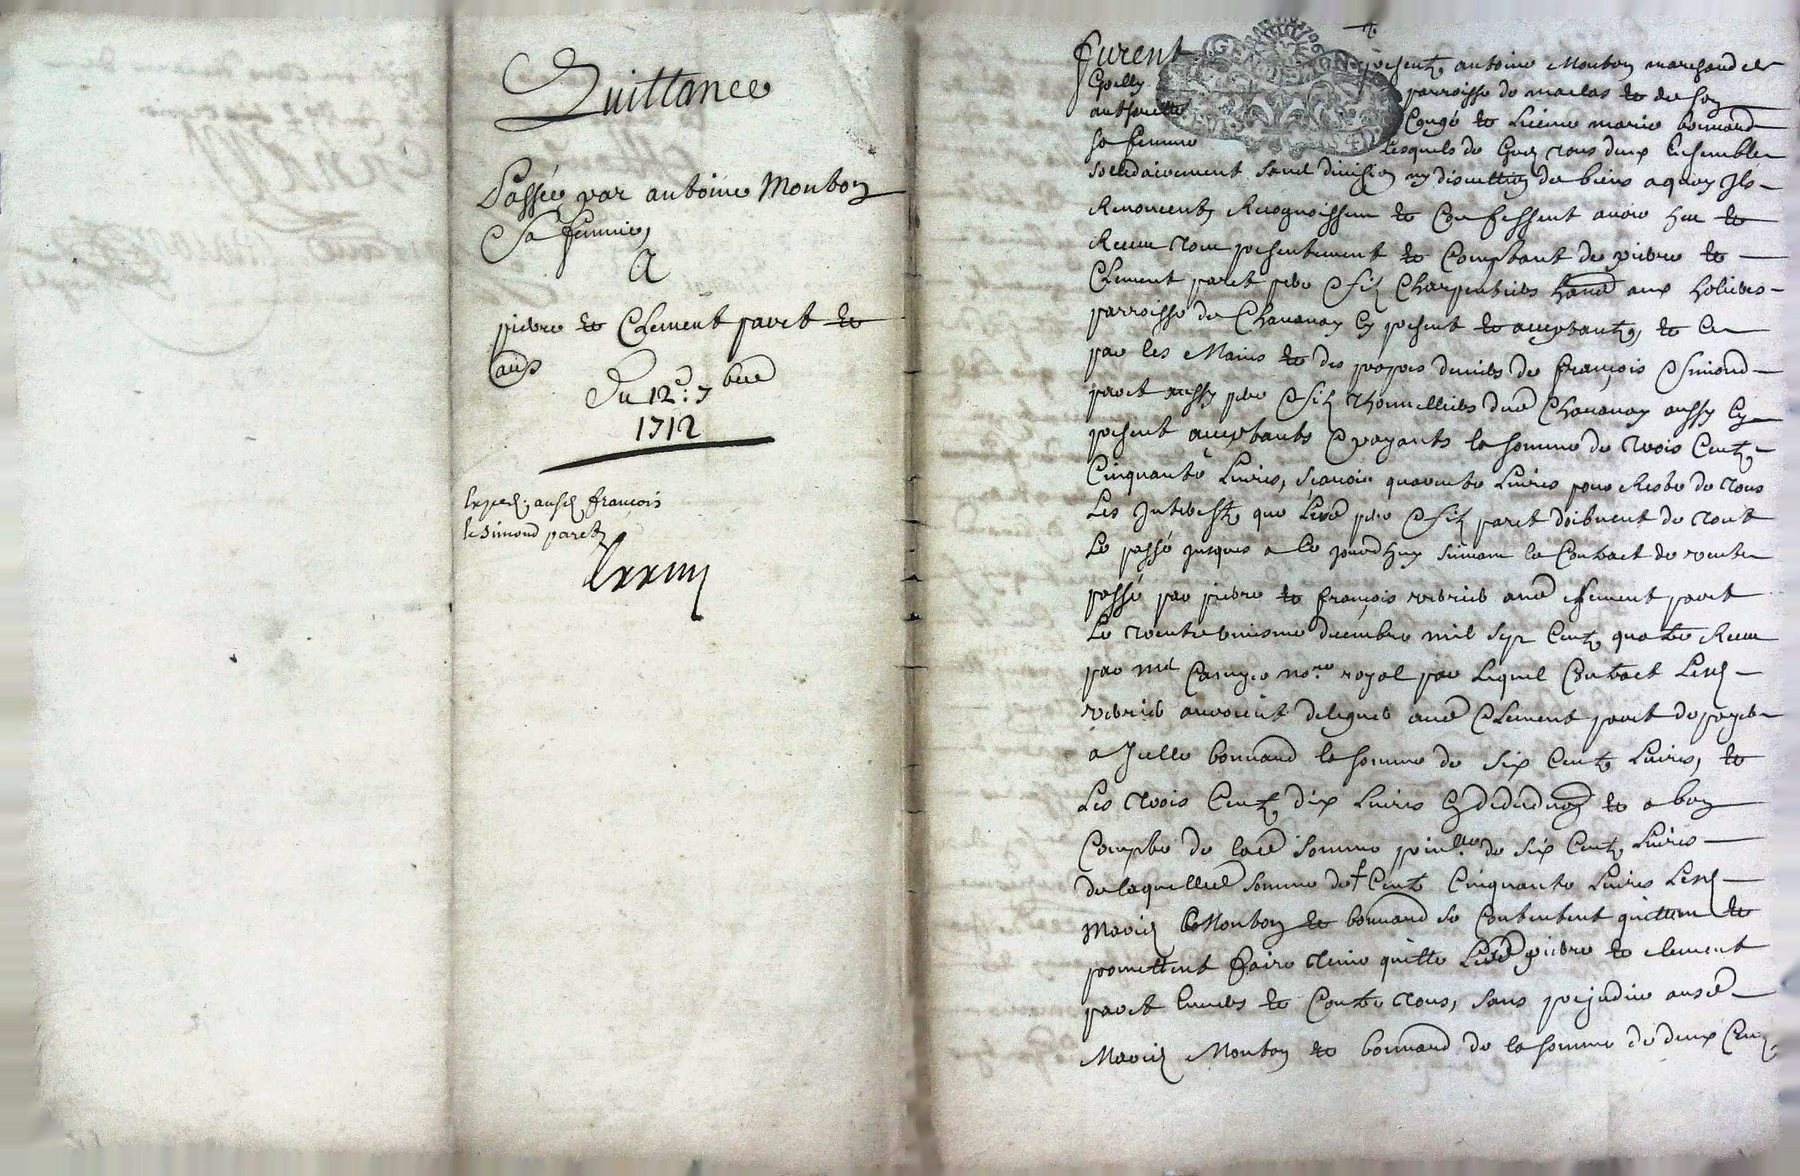 Quittance
Passée par antoine Monton
Sa femme,
A
pierre et Clement paret et
aus
Du 12e: 7bre
1712
exped, ausd, françois
et Simond paret
furent
presents antoine Monton marchand de
parroisse de maclas et de son
authorité Congé et Licence marie bonnard
sa femme Lesquels de Gred tous deux Ensemble
solidairement sand division ny discution de biens a quoy Ils
Renoncent, Recognoissent et Confessent avoir heu et
Receu tout presentement et Comptant de pierre et
Clement paret pere & fils Charpentiers aux
parroisse de Chavanay Cy present et acceptants, et Ce
par les Mains et des propres deniers de françois & Simond
paret aussy pere & fils thonnelliers dud Chavanay aussy Cy
present acceptants & payants la somme de trois Cents
Cinquante Livres, scavoir quarente Livres pour Reste de tous
Les Interests que Lesd pere & fils paret doibvent de tout
Le passé jusques a Ce jourdhuy suivant le Contract de vente
passé par pierre et françois aud Clement paret
Le decembre mil sept Cents quatre Receu
par me nore royal par Lequel Contract Lesd
avoient delegués aud Clement paret de payer
a Julle bonnard la somme de six Cents Livres, et
Les trois Cents dix Livres En deduction et a bon
Compte de lad somme prinlle de six Cents Livres
de laquelle somme de + Cents Cinquante Livres Lesd
Mariés Monton et bonnard se Contentent quittent et
promettent faire tenir quitte Lesd pierre et clement
paret Envers et Contre tous, sans prejudice ausd
Mariés Monton et bonnard de la somme de deux Cens